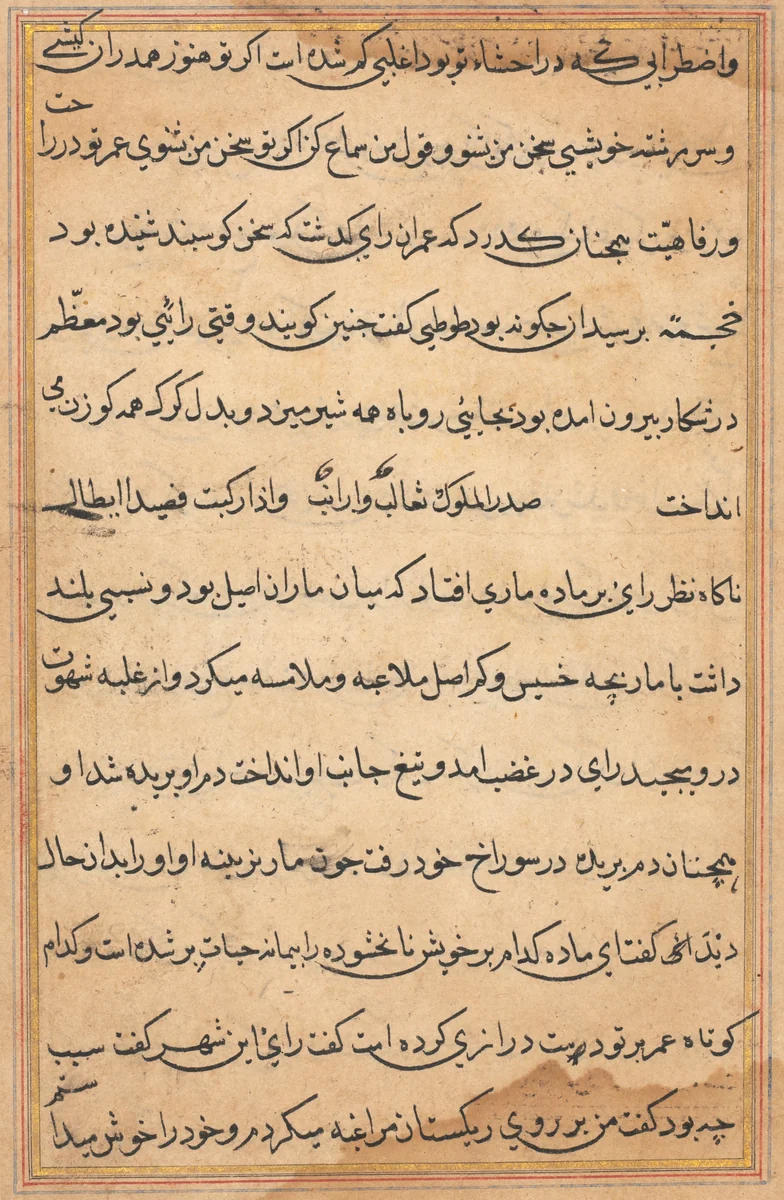 واضطرابی که در احشاء تو بود اغلبی کم شده است اکر تو هنوز همدران کیشے
و سر رشته خویشی سخن من بشنو و قول من سماع کن اکر تو سخن من بشنوی عمر تو در راحت
و رفاهیّت همجنان کدرد که عمران رای کدشت که سخن کوسبند شنیده بود
خجسته برسید ان جکونه بود طوطی کفت جنین کویند وقتی رائیی بود معظّم
در شکار بیرون امده بود بجایئی روباه همه شیر میزد و بدل کرک همه کوزن می
انداخت صدر الملوک ثعالب وارانب واذا رکبت فصیدا ابطالے
ناکاه نظر رای بر ماده ماری افتاد که میان ماران اصیل بود و نسبیی بلند
داشت با مار بچه خسیس و کم اصل ملاعبه و ملامسه میکرد و از غلبه شهوت
درو ببجید رای در غضب امد و تیغ جانب او انداخت دم او بریده شد او
همچنان دم بریده در سوراخ خود رفت جون مار نرینه او او را بدان حال
دید کفت ای ماده کدام بر خویش نابخشوده را بیمانه حیات بر شده است و کدام
کوتاه عمر بر تو دست درازی کرده است کفت رای این شهر کفت سبب
چه بود کفت من بر روی ریکستان مراغبه میکردم و خود را خوش میداستم